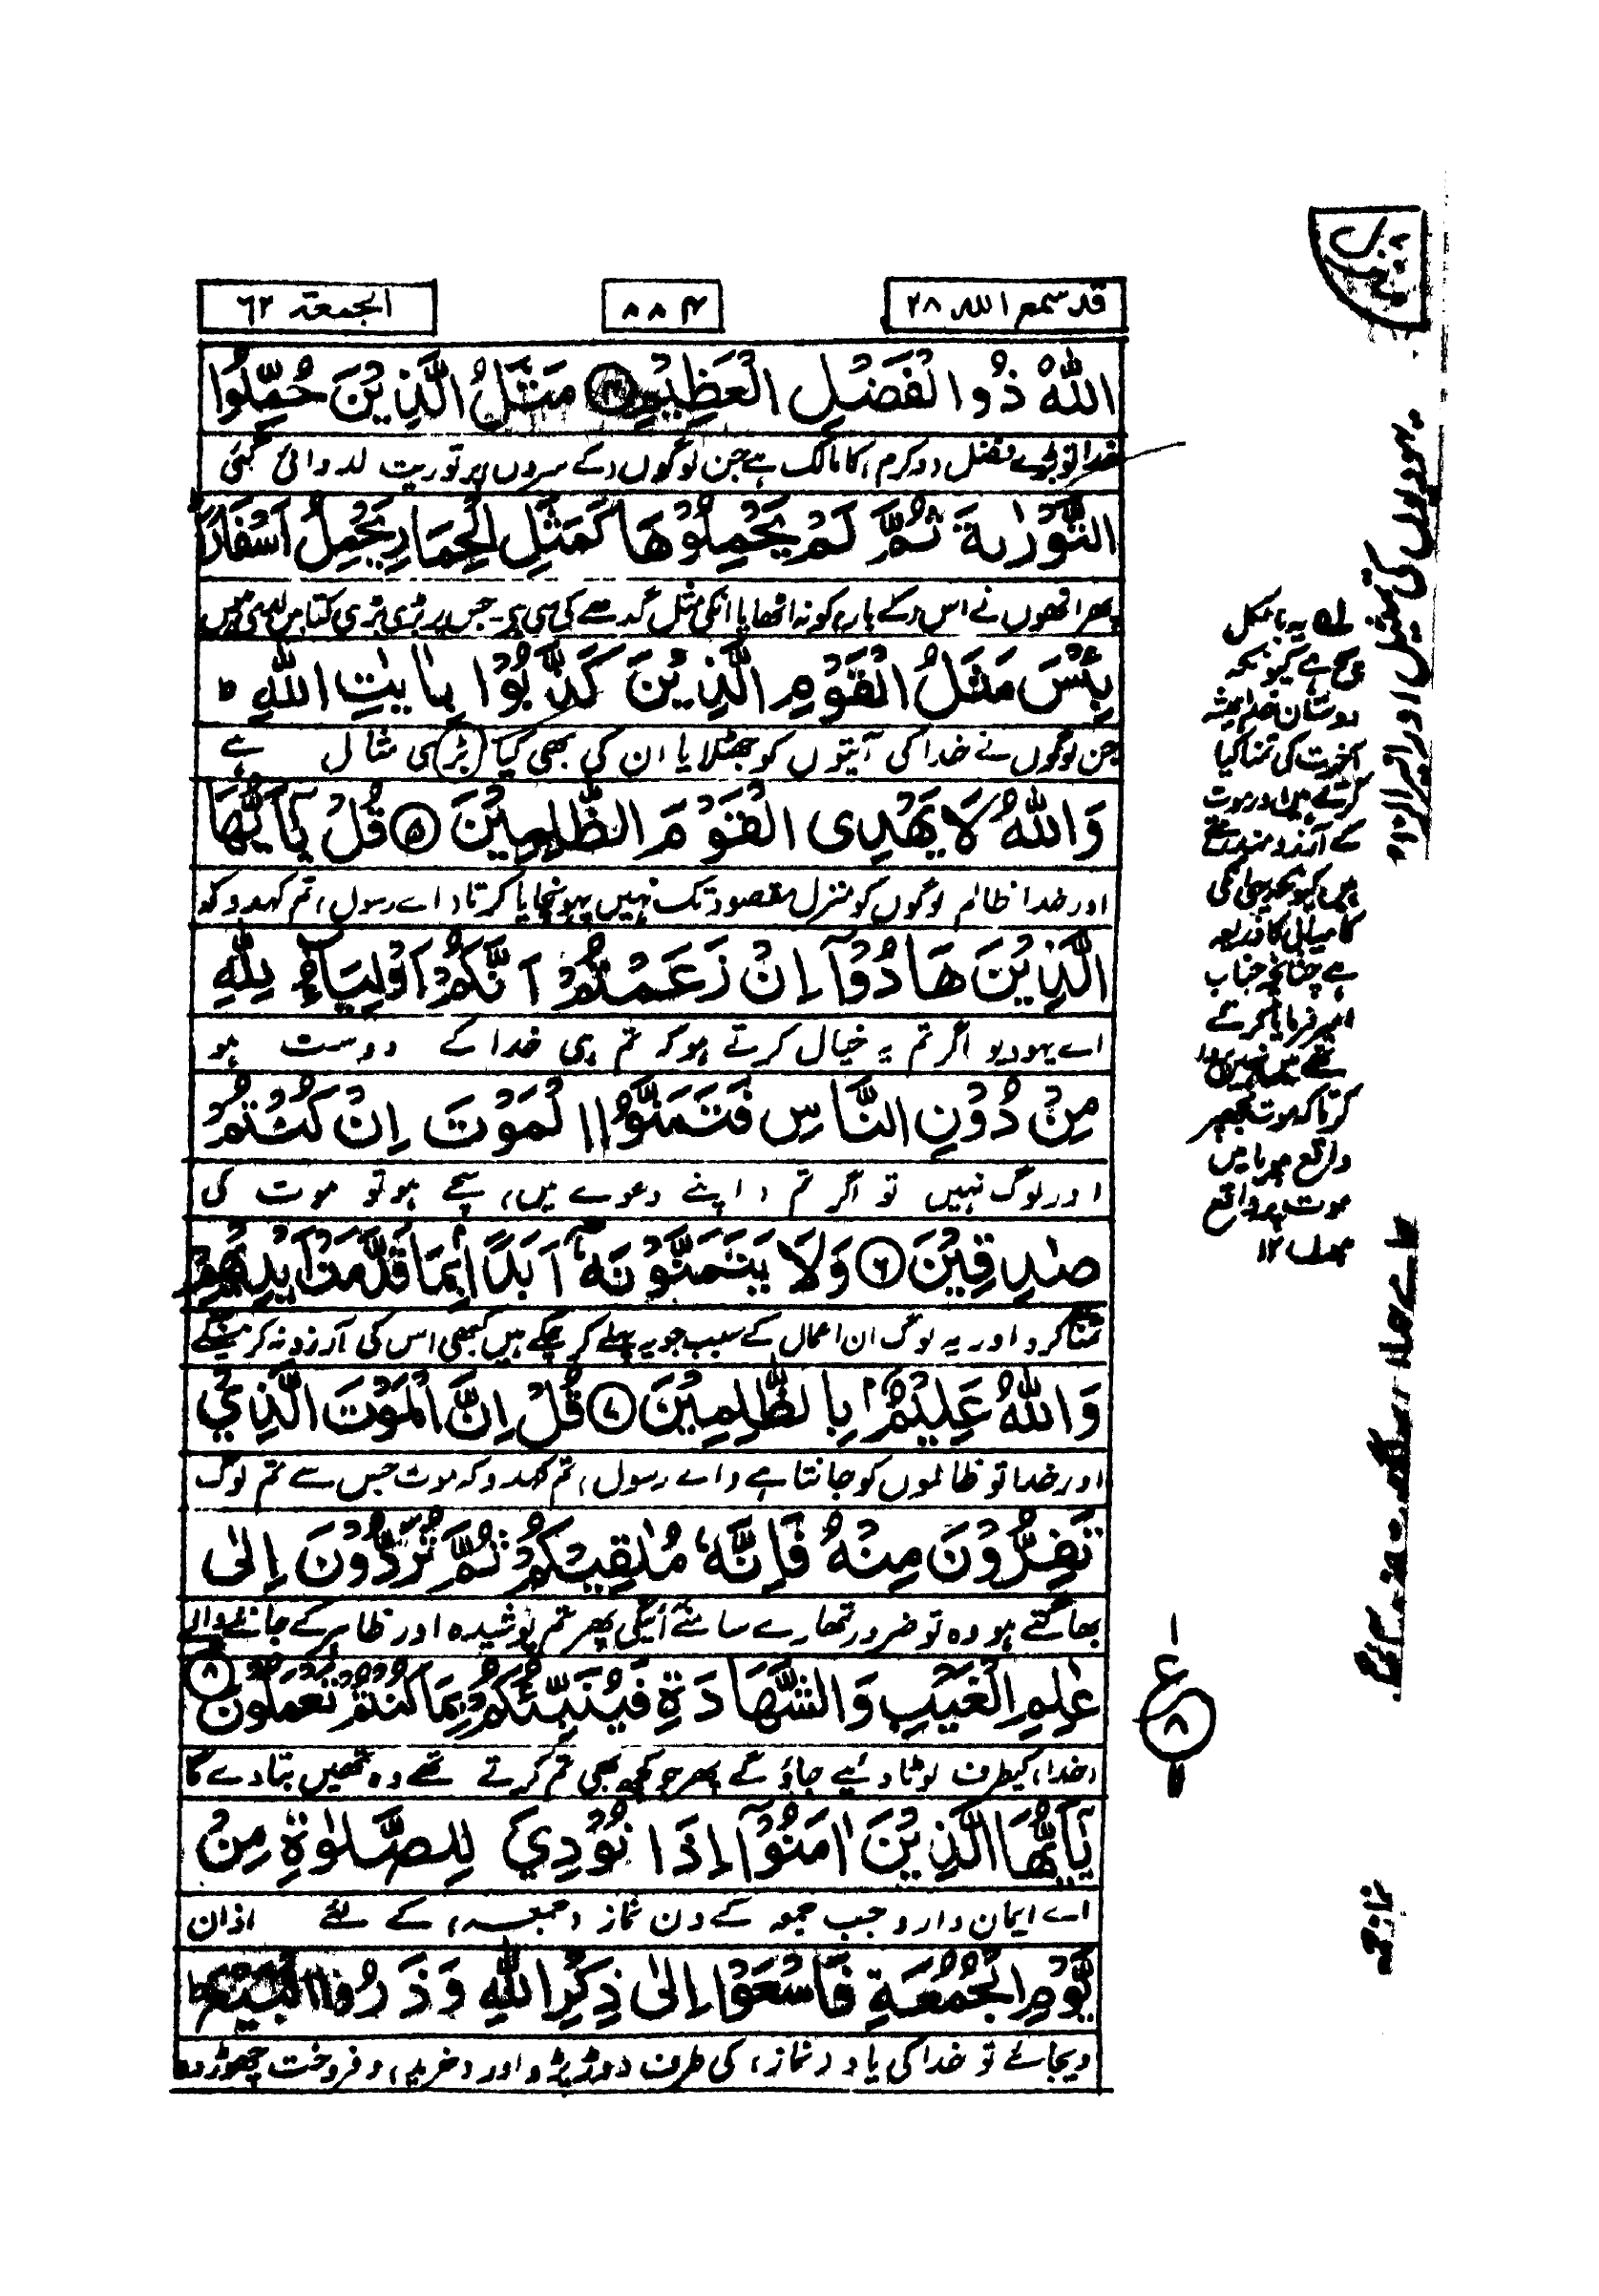 قد سمع الله ۲۸
۸۸۴
الجمعة ۶۲
اللّٰهُ ذُوالْفَضْلِ الْعَظِيْمِ ۴ مَثَلُ الَّذِيْنَ حُمِّلُوا
خدا تو بڑے فضل (و کرم) کا مالک ہے جن لوگوں (کے سروں) پر توریت لدوائی گئی
التَّوْرٰىةَ ثُمَّ لَمْ يَحْمِلُوْهَا كَمَثَلِ الْحِمَارِ يَحْمِلُ اَسْفَارًا
پھر انھوں نے اس (کے بار) کو نہ اٹھایا انکی مثل گدھے کی سی ہے۔ جس پر بڑی بڑی کتابیں لدی ہیں
بِئْسَ مَثَلُ الْقَوْمِ الَّذِيْنَ كَذَّبُوْا بِاٰيٰتِ اللّٰهِ ط
جن لوگوں نے خدا کی آیتوں کو جھٹلایا ان کی بھی کیا بڑی مثال ہے
وَاللّٰهُ لَا يَهْدِى الْقَوْمَ الظّٰلِمِيْنَ ۵ قُلْ يٰۤاَيُّهَا
اور خدا ظالم لوگوں کو منزل مقصود تک نہیں پہونچایا کرتا (اے رسول) تم کہدو کہ
الَّذِيْنَ هَادُوْۤا اِنْ زَعَمْتُمْ اَنَّكُمْ اَوْلِيَآءُ لِلّٰهِ
اے یہودیو اگر تم یہ خیال کرتے ہو کہ تم ہی خدا کے دوست ہو
مِنْ دُوْنِ النَّاسِ فَتَمَنَّوُا الْمَوْتَ اِنْ كُنْتُمْ
اور لوگ نہیں تو اگر تم (اپنے دعوے میں) سچے ہو تو موت کی
صٰدِقِيْنَ ۶ وَلَا يَتَمَنَّوْنَهٗۤ اَبَدًۢا بِمَا قَدَّمَتْ اَيْدِيْهِمْ
تمنا کرو اور یہ لوگ ان اعمال کے سبب جو یہ پہلے کر چکے ہیں کبھی اس کی آرزو نہ کرینگے
وَاللّٰهُ عَلِيْمٌۢ بِالظّٰلِمِيْنَ ۷ قُلْ اِنَّ الْمَوْتَ الَّذِيْ
اور خدا تو ظالموں کو جانتا ہے (اے رسول) تم کہدو کہ موت جس سے تم لوگ
تَفِرُّوْنَ مِنْهُ فَاِنَّهٗ مُلٰقِيْكُمْ ثُمَّ تُرَدُّوْنَ اِلٰى
بھاگتے ہو وہ تو ضرور تمھارے سامنے آئیگی پھر تم پوشیدہ اور ظاہر کے جاننے والے
عٰلِمِ الْغَيْبِ وَالشَّهَادَةِ فَيُنَبِّئُكُمْ بِمَا كُنْتُمْ تَعْمَلُوْنَ ۸
(خدا) کیطرف لوٹا دئیے جاؤ گے پھر جو کچھ بھی تم کرتے تھے وہ تمھیں بتا دے گا
يٰۤاَيُّهَا الَّذِيْنَ اٰمَنُوْۤا اِذَا نُوْدِيَ لِلصَّلٰوةِ مِنْ
اے ایمان دارو جب جمعہ کے دن نماز (جمعہ) کے لئے اذان
يَّوْمِ الْجُمُعَةِ فَاسْعَوْا اِلٰى ذِكْرِ اللّٰهِ وَذَرُوا الْبَيْعَ ط
دیجائے تو خدا کی یاد (نماز) کی طرف دوڑ پڑو اور (خرید) و فروخت چھوڑ دو
لے یہ بالکل
سچ ہے کیونکہ
دوستان خدا ہمیشہ
آخرت کی تمنا کیا
کرتے ہیں اور موت
کے آرزومند رہتے
ہیں کیونکہ یہی انکی
کامیابی کا ذریعہ
ہے چنانچہ جناب
امیر فرمایا کرتے
تھے میں نہیں پروا
کرتا کہ موت مجھپر
واقع ہو یا میں
موت پر واقع
ہوں ۱۲
یہودیوں کی تمثیل اور
ع
۸
نماز جمعہ